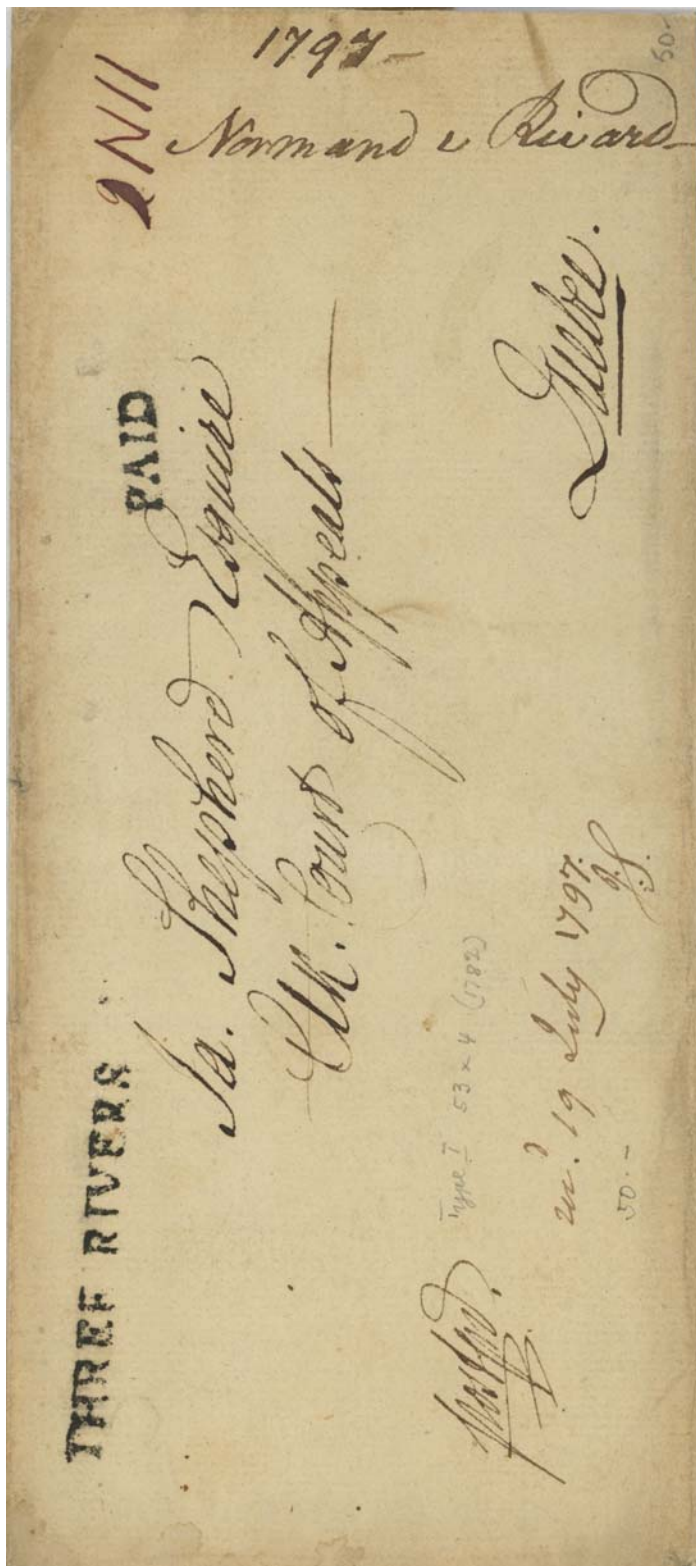 1797
Normand & Rivard
50.-
THREE RIVERS
PAID
Ja. Shepherd Esquire
Clk. Court of Appeals
Quebec.
Type I 53 x 4 (1782)
recd. 19 July 1797.
J.S.
50.-